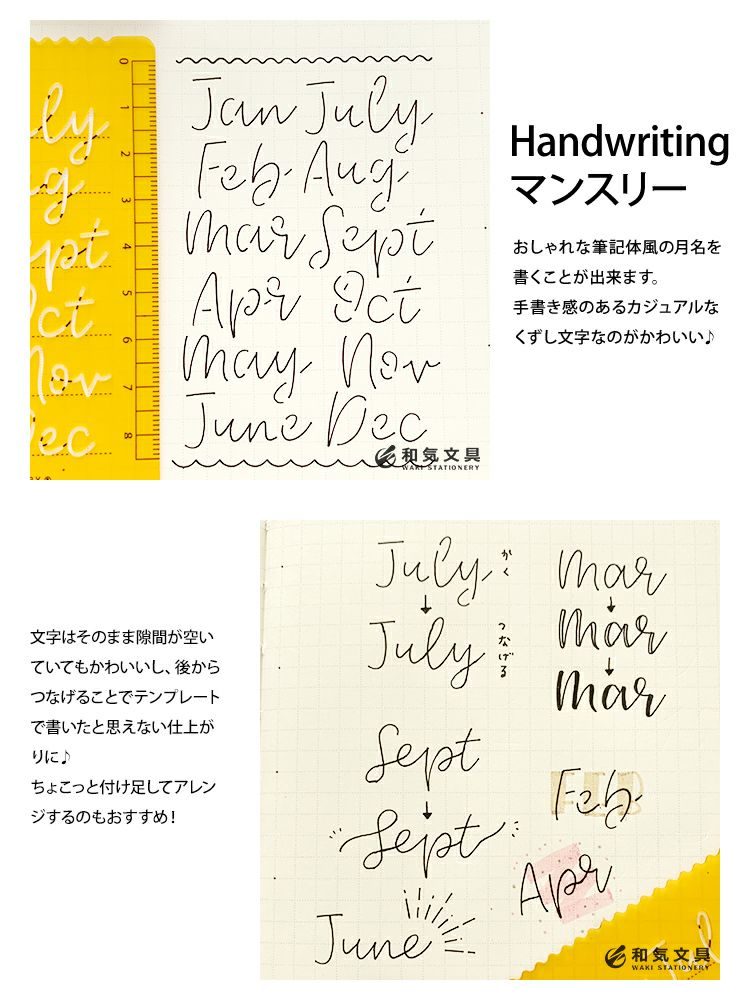 uly
ug
ept
Oct
Nov
Dec
0
1
2
3
4
5
6
7
8
Jan July
Feb Aug
Mar Sept
Apr Oct
May Nov
June Dec
和気文具
WAKI STATIONERY
Handwriting
マンスリー
おしゃれな筆記体風の月名を
書くことが出来ます。
手書き感のあるカジュアルな
くずし文字なのがかわいい♪
文字はそのまま隙間が空い
ていてもかわいいし、後から
つなげることでテンプレート
で書いたと思えない仕上が
りに♪
ちょこっと付け足してアレン
ジするのもおすすめ！
July かく
↓
July つなげる
Sept
↓
Sept
June
Mar
↓
Mar
↓
Mar
Feb
Apr
和気文具
WAKI STATIONERY